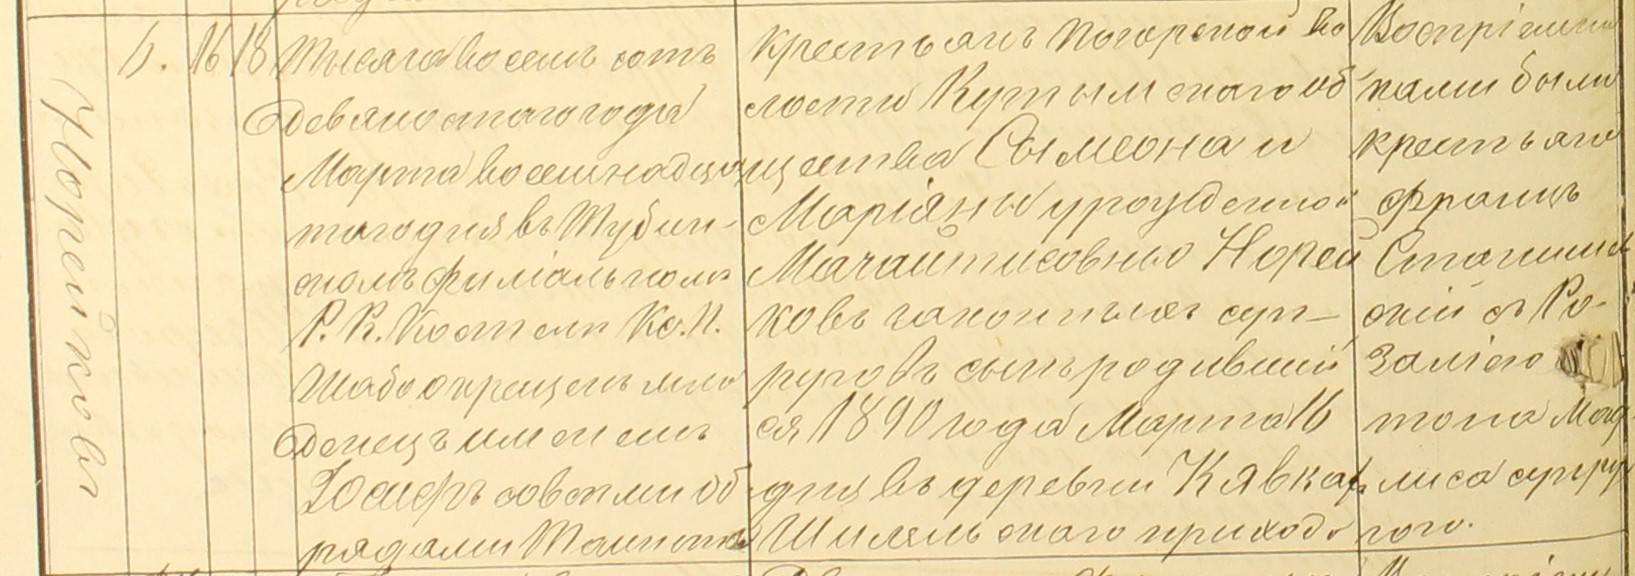 Норейковъ
5. 16 18
Тысяча восемь сотъ
Девяностаго года
Марта восемнадца
таго дня въ Тубин-
скомъ филіальномъ
Р. К. Костели Кс. И.
окрещенъ мла
денецъ именемъ
Іосифъ со всеми об
рядами Таинства
Крестьянъ Погорской Во
лости Кутымскаго об
щества Сымеона и
Маріяны урожденной
Норей
ковъ законныхъ суп-
руговъ сынъ родивший
ся 1890 года Марта 16
дня въ деревни Кявкаль
Шилельскаго прихода
Воспріемни
ками были
крестьяне
Францъ
съ Ро-
заліею
супру
гою.